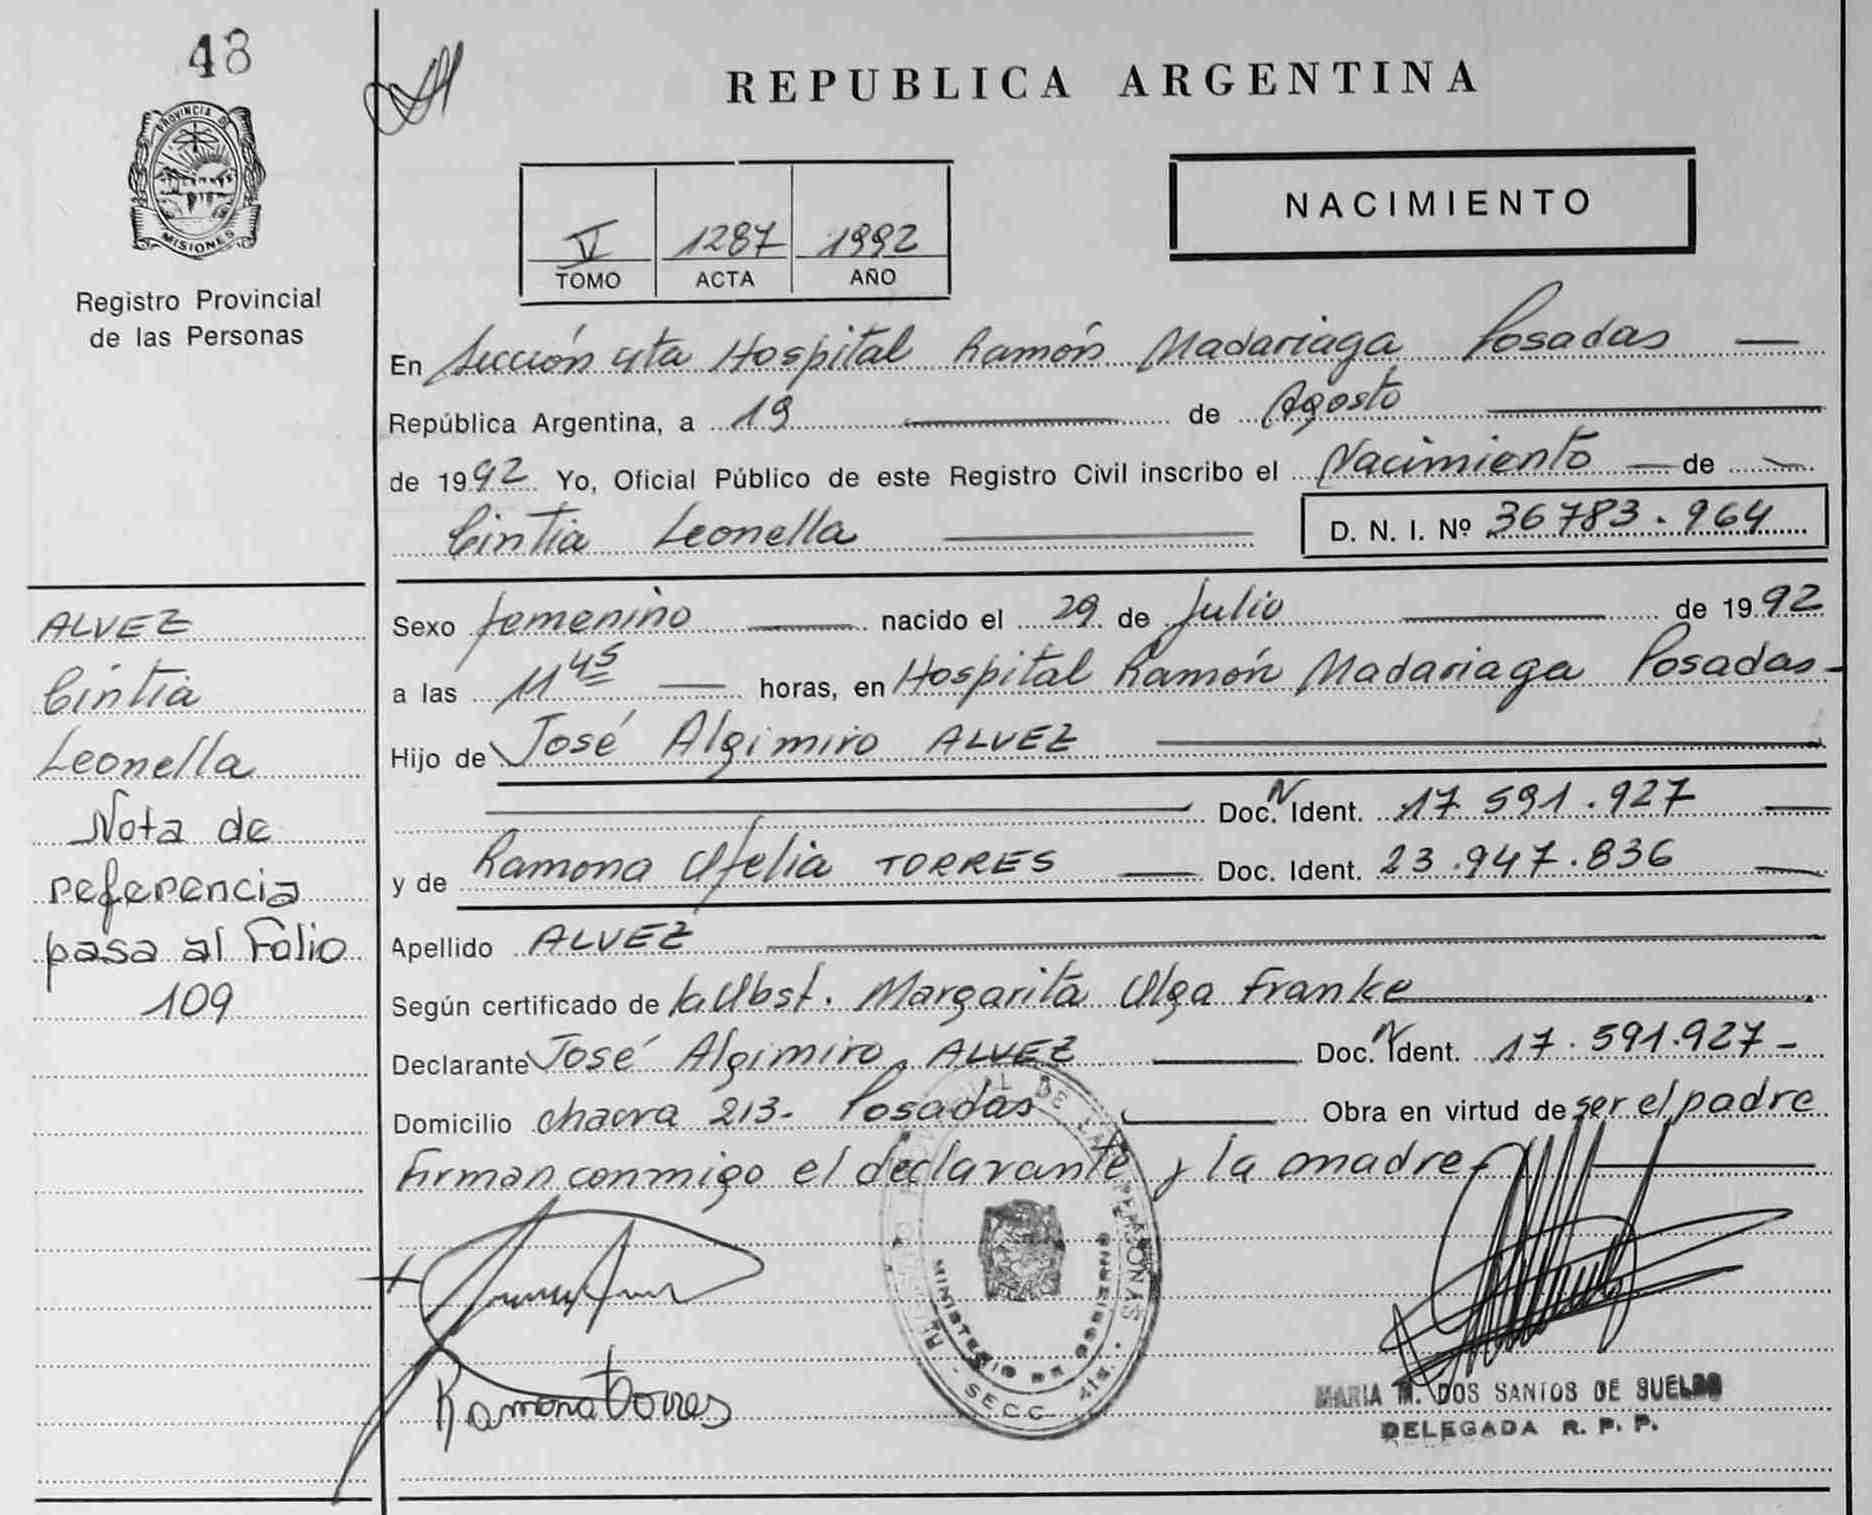 48
PROVINCIA DE
MISIONES
Registro Provincial
de las Personas
REPUBLICA ARGENTINA
V 1287 1992
TOMO ACTA AÑO
NACIMIENTO
En Sección 4ta Hospital Ramón Madariaga Posadas
República Argentina, a 19 de Agosto
de 1992 Yo, Oficial Público de este Registro Civil inscribo el Nacimiento de
Cintia Leonella D. N. I. Nº 36783.964
Sexo femenino nacido el 29 de Julio de 1992
a las 11 45 horas, en Hospital Ramón Madariaga Posadas
Hijo de José Algimiro ALVEZ
Doc. N Ident. 17 591.927
y de Ramona Ofelia TORRES Doc. Ident. 23.947.836
Apellido ALVEZ
Según certificado de la Obst. Margarita Olga Franke
Declarante José Algimiro ALVEZ Doc. N Ident. 17.591.927-
Domicilio chacra 213- Posadas Obra en virtud de ser el padre
Firman conmigo el declarante y la madre
ALVEZ
Cintia
Leonella
Nota de
referencia
pasa al Folio
109
MINISTERIO DE GOBIERNO
SECC. 4ta.
Ramona Torres
MARIA M. DOS SANTOS DE SUELDO
DELEGADA R. P. P.